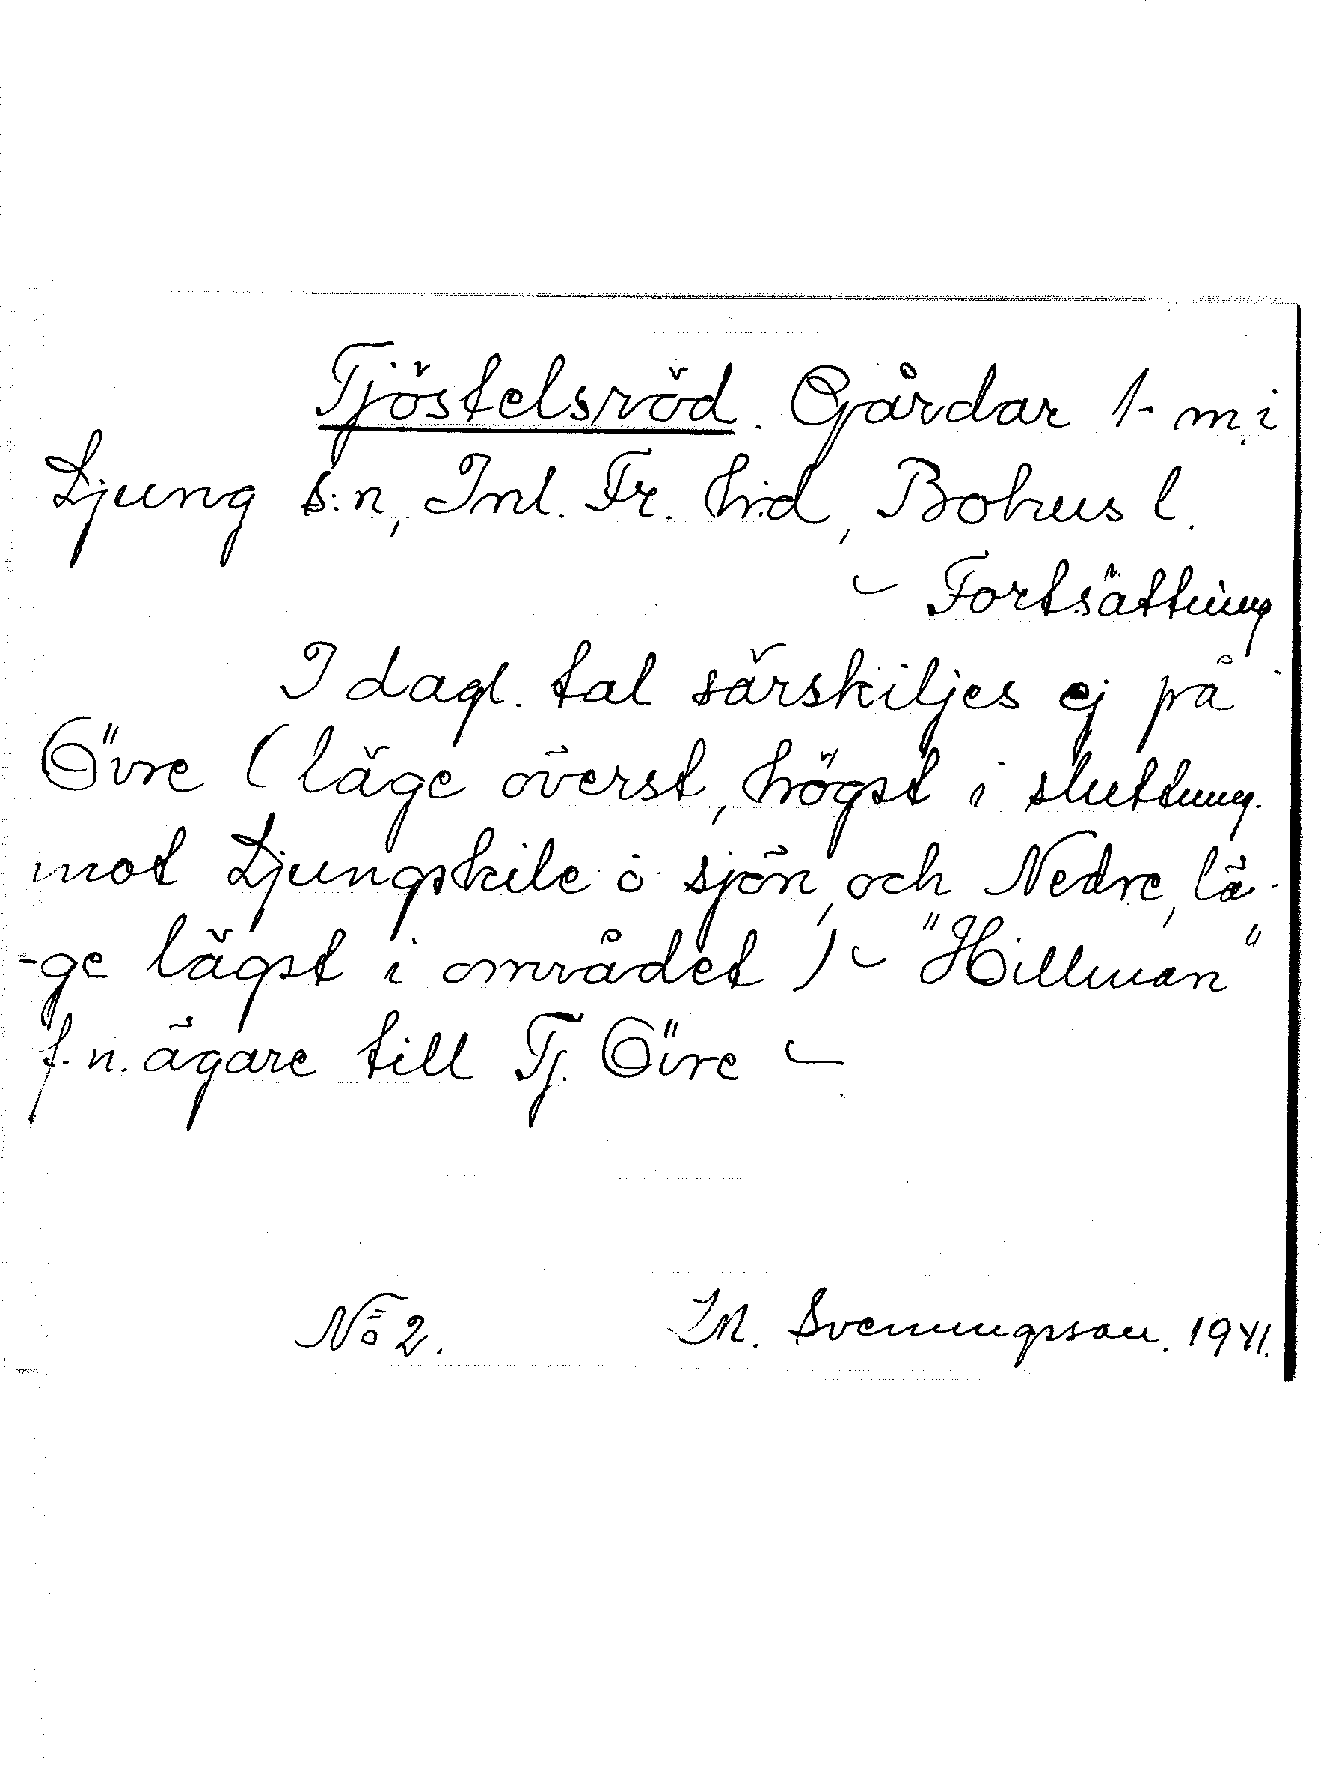 Tjöstelsröd. Gårdar 1- m, i
Ljung s:n, Inl. Fr. hrd, Bohus l.
- Fortsättning
I dagl. tal särskiljes ej på
Övre (läge överst, högst i sluttning.
mot Ljungskile o sjön, och Nedre, lä-
-ge lägst i området) - "Hillman"
f.n. ägare till Tj. Övre -
No 2. Svenningsson. 1941.